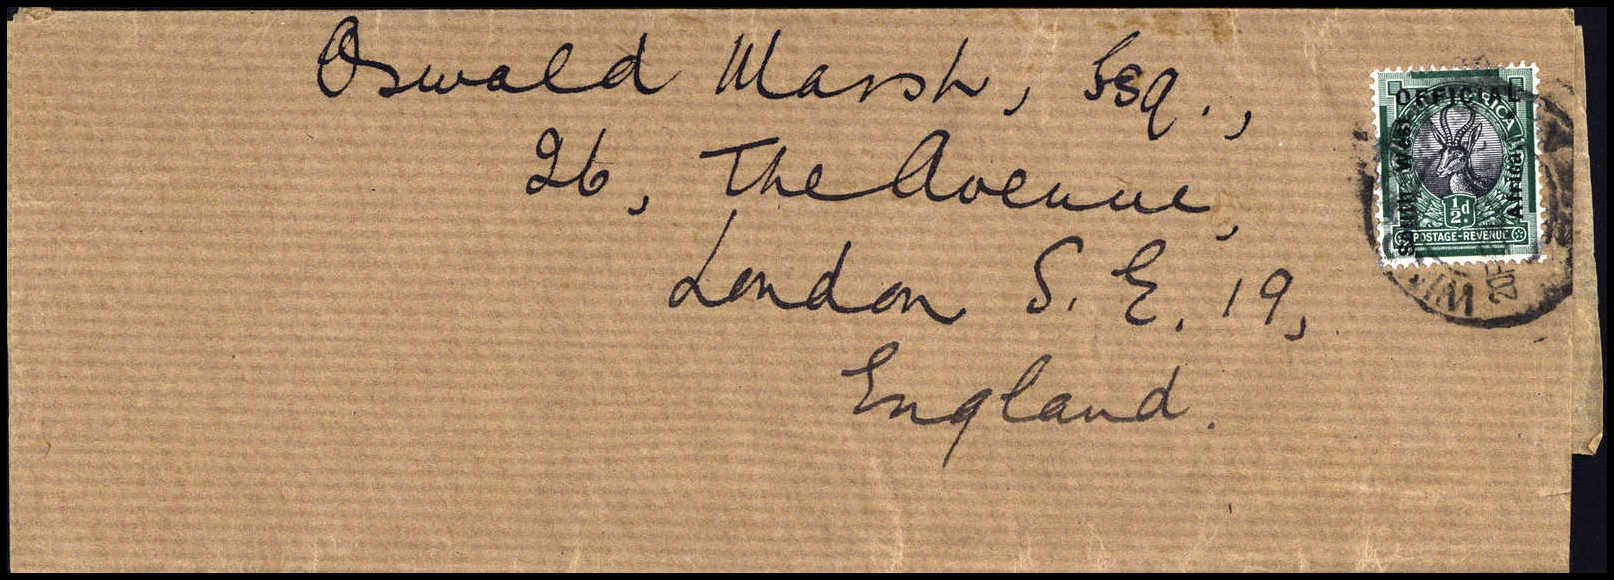 Oswald Marsh, Esq.,
26, The Avenue,
London S. E. 19,
England.
OFFICIAL
South West
Africa
½d.
POSTAGE-REVENUE